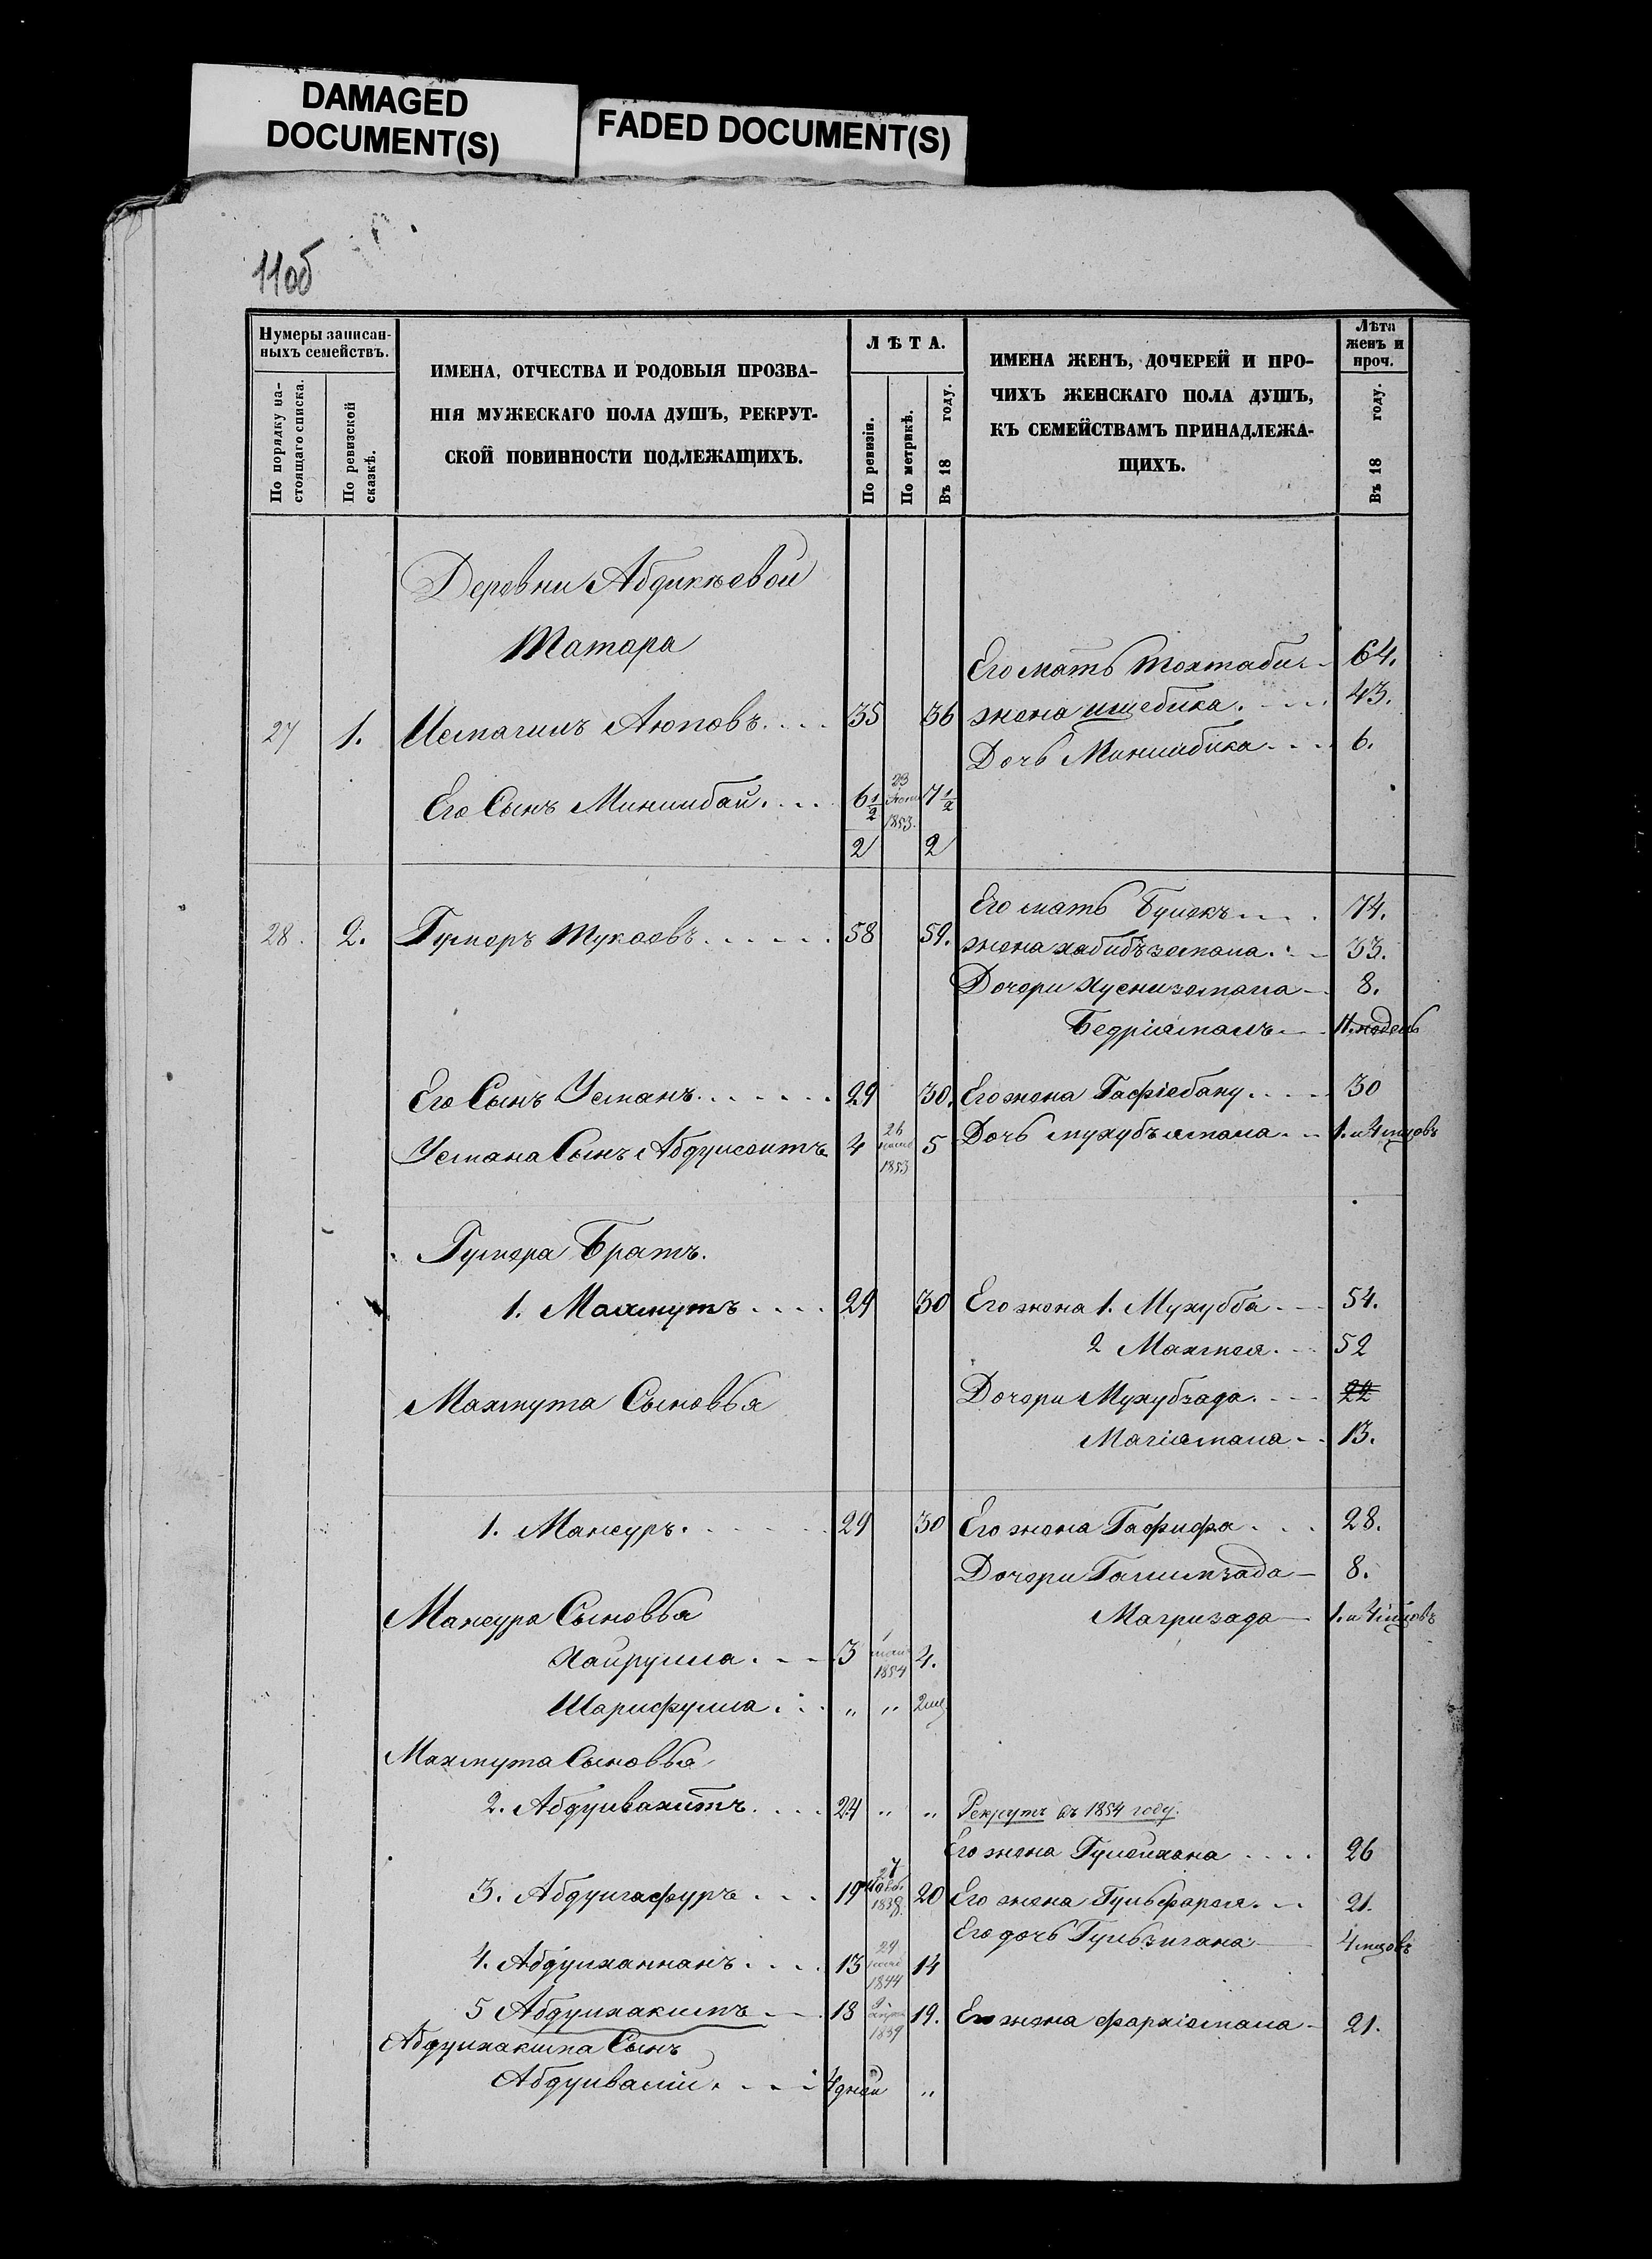 DAMAGED
DOCUMENT(S)
FADED DOCUMENT(S)
110б
Нумеры записан-
ныхъ семействъ.
По порядку на-
стоящаго списка.
По ревизской
сказкѣ.
ИМЕНА, ОТЧЕСТВА И РОДОВЫЯ ПРОЗВА-
НІЯ МУЖЕСКАГО ПОЛА ДУШЪ, РЕКРУТ-
СКОЙ ПОВИННОСТИ ПОДЛЕЖАЩИХЪ.
ЛѢТА.
По ревизіи.
По метрикѣ.
Въ 18 году.
ИМЕНА ЖЕНЪ, ДОЧЕРЕЙ И ПРО-
ЧИХЪ ЖЕНСКАГО ПОЛА ДУШЪ,
КЪ СЕМЕЙСТВАМЪ ПРИНАДЛЕЖА-
ЩИХЪ.
Лѣта
женъ и
проч.
Въ 18 году.
Деревни Абдикѣевой
Татара
Его мать Тохтаби 64.
27 1. Исмагилъ Аюповъ 35 36 жена ишебика 43.
Дочь Миншибика 6.
Его Сынъ Миншибай 6 1/2 23 1853. 7 1/2
2 2
Его мать Булекъ 74.
28. 2. Гумеръ Тукаевъ 58 59. жена хабибъземала 33.
Дочери Хуснизямала 8.
Бедріямалъ
Его Сынъ Усманъ 29 30. Его жена Гафіебану 30
Усмана Сынъ Абдулсаитъ 4 26 1853 5 Дочь мухубъямала 1. и 4 мцовъ
Гумера Братъ.
1. Махмутъ 29 30 Его жена 1. Мухубба 54.
2 Махтея 52
Махмута Сыновья Дочери Мухубзада 22
Магіямала 13.
1. Мансуръ 29 30 Его жена Гафифа 28.
Дочери Галимзада 8.
Мансура Сыновья Магризада 1. и 4 мцовъ
Хайрулла 3 1 1854 4.
Шарифулла „ „ 2 мц
Махмута Сыновья
2. Абдулвахитъ 24 „ „ Рекрутъ въ 1854 году.
Его жена Гулсихана 26
3. Абдулгафуръ 19 27 1838. 20 Его жена Гульфарея 21.
Его дочь Гульзигана 4 мцовъ
4. Абдулханнанъ 13 29 1844 14
5 Абдулхакимъ 18 9 1839 19. Его жена фархіямала 21.
Абдулхакима Сынъ
Абдулвалій 4 дней „